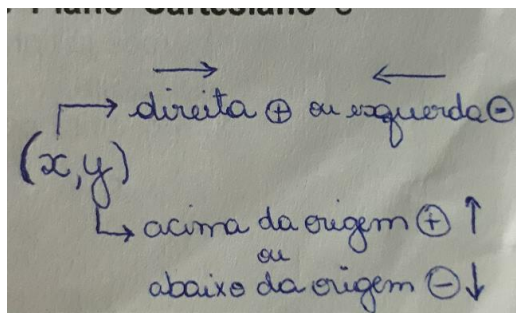 Plano Cartesiano e
→ ←
→ direita ⊕ ou esquerda ⊖
(x,y)
→ acima da origem ⊕ ↑
ou
abaixo da origem ⊖ ↓